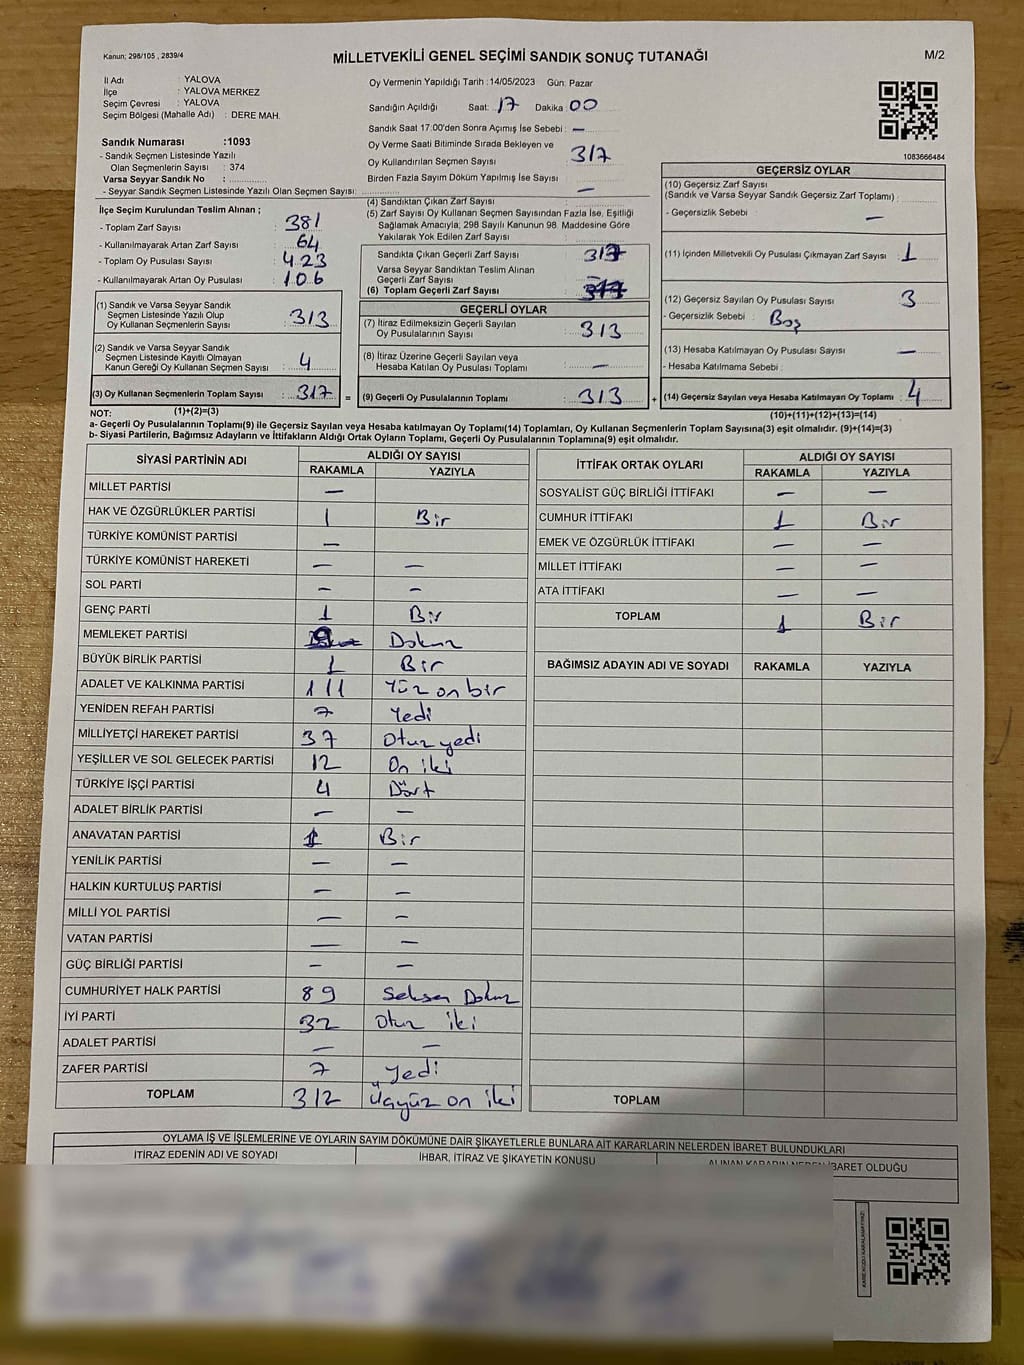 Kanun; 298/105 , 2839/4
MİLLETVEKİLİ GENEL SEÇİMİ SANDIK SONUÇ TUTANAĞI
M/2
İl Adı : YALOVA
İlçe : YALOVA MERKEZ
Seçim Çevresi : YALOVA
Seçim Bölgesi (Mahalle Adı) : DERE MAH.
Sandık Numarası :1093
- Sandık Seçmen Listesinde Yazılı
Olan Seçmenlerin Sayısı : 374
Varsa Seyyar Sandık No :
- Seyyar Sandık Seçmen Listesinde Yazılı Olan Seçmen Sayısı:
Oy Vermenin Yapıldığı Tarih :14/05/2023 Gün: Pazar
Sandığın Açıldığı Saat: 17 Dakika 00
Sandık Saat 17:00'den Sonra Açımış İse Sebebi: —
Oy Verme Saati Bitiminde Sırada Bekleyen ve
Oy Kullandırılan Seçmen Sayısı 317
Birden Fazla Sayım Döküm Yapılmış İse Sayısı —
1083666484
İlçe Seçim Kurulundan Teslim Alınan ;
- Toplam Zarf Sayısı : 381
- Kullanılmayarak Artan Zarf Sayısı : 64
- Toplam Oy Pusulası Sayısı : 423
- Kullanılmayarak Artan Oy Pusulası : 106
(1) Sandık ve Varsa Seyyar Sandık
Seçmen Listesinde Yazılı Olup
Oy Kullanan Seçmenlerin Sayısı : 313
(2) Sandık ve Varsa Seyyar Sandık
Seçmen Listesinde Kayıtlı Olmayan
Kanun Gereği Oy Kullanan Seçmen Sayısı : 4
(3) Oy Kullanan Seçmenlerin Toplam Sayısı : 317 =
(4) Sandıktan Çıkan Zarf Sayısı :
(5) Zarf Sayısı Oy Kullanan Seçmen Sayısından Fazla İse, Eşitliği
Sağlamak Amacıyla; 298 Sayılı Kanunun 98. Maddesine Göre
Yakılarak Yok Edilen Zarf Sayısı :
Sandıkta Çıkan Geçerli Zarf Sayısı : 317
Varsa Seyyar Sandıktan Teslim Alınan
Geçerli Zarf Sayısı : —
(6) Toplam Geçerli Zarf Sayısı : 317
GEÇERLİ OYLAR
(7) İtiraz Edilmeksizin Geçerli Sayılan
Oy Pusulalarının Sayısı : 313
(8) İtiraz Üzerine Geçerli Sayılan veya
Hesaba Katılan Oy Pusulası Toplamı : —
(9) Geçerli Oy Pusulalarının Toplamı : 313 +
GEÇERSİZ OYLAR
(10) Geçersiz Zarf Sayısı
(Sandık ve Varsa Seyyar Sandık Geçersiz Zarf Toplamı) :
- Geçersizlik Sebebi : —
(11) İçinden Milletvekili Oy Pusulası Çıkmayan Zarf Sayısı : 1
(12) Geçersiz Sayılan Oy Pusulası Sayısı : 3
- Geçersizlik Sebebi : Boş
(13) Hesaba Katılmayan Oy Pusulası Sayısı : —
- Hesaba Katılmama Sebebi :
(14) Geçersiz Sayılan veya Hesaba Katılmayan Oy Toplamı : 4
NOT: (1)+(2)=(3)
(10)+(11)+(12)+(13)=(14)
a- Geçerli Oy Pusulalarının Toplamı(9) ile Geçersiz Sayılan veya Hesaba katılmayan Oy Toplamı(14) Toplamları, Oy Kullanan Seçmenlerin Toplam Sayısına(3) eşit olmalıdır. (9)+(14)=(3)
b- Siyasi Partilerin, Bağımsız Adayların ve İttifakların Aldığı Ortak Oyların Toplamı, Geçerli Oy Pusulalarının Toplamına(9) eşit olmalıdır.
SİYASİ PARTİNİN ADI ALDIĞI OY SAYISI
RAKAMLA YAZIYLA
MİLLET PARTİSİ —
HAK VE ÖZGÜRLÜKLER PARTİSİ 1 Bir
TÜRKİYE KOMÜNİST PARTİSİ —
TÜRKİYE KOMÜNİST HAREKETİ — —
SOL PARTİ — —
GENÇ PARTİ 1 Bir
MEMLEKET PARTİSİ 9 Dokuz
BÜYÜK BİRLİK PARTİSİ 1 Bir
ADALET VE KALKINMA PARTİSİ 111 Yüz on bir
YENİDEN REFAH PARTİSİ 7 Yedi
MİLLİYETÇİ HAREKET PARTİSİ 37 Otuz yedi
YEŞİLLER VE SOL GELECEK PARTİSİ 12 On iki
TÜRKİYE İŞÇİ PARTİSİ 4 Dört
ADALET BİRLİK PARTİSİ — —
ANAVATAN PARTİSİ 1 Bir
YENİLİK PARTİSİ — —
HALKIN KURTULUŞ PARTİSİ — —
MİLLİ YOL PARTİSİ — —
VATAN PARTİSİ — —
GÜÇ BİRLİĞİ PARTİSİ — —
CUMHURİYET HALK PARTİSİ 89 Seksen Dokuz
İYİ PARTİ 32 Otuz iki
ADALET PARTİSİ — —
ZAFER PARTİSİ 7 Yedi
TOPLAM 312 Üçyüz on iki
İTTİFAK ORTAK OYLARI ALDIĞI OY SAYISI
RAKAMLA YAZIYLA
SOSYALİST GÜÇ BİRLİĞİ İTTİFAKI — —
CUMHUR İTTİFAKI 1 Bir
EMEK VE ÖZGÜRLÜK İTTİFAKI — —
MİLLET İTTİFAKI — —
ATA İTTİFAKI — —
TOPLAM 1 Bir
BAĞIMSIZ ADAYIN ADI VE SOYADI RAKAMLA YAZIYLA
TOPLAM
OYLAMA İŞ VE İŞLEMLERİNE VE OYLARIN SAYIM DÖKÜMÜNE DAİR ŞİKAYETLERLE BUNLARA AİT KARARLARIN NELERDEN İBARET BULUNDUKLARI
İTİRAZ EDENİN ADI VE SOYADI İHBAR, İTİRAZ VE ŞİKAYETİN KONUSU ALINAN KARARIN NEDEN İBARET OLDUĞU
KAREKODU KARALAMAYINIZ!